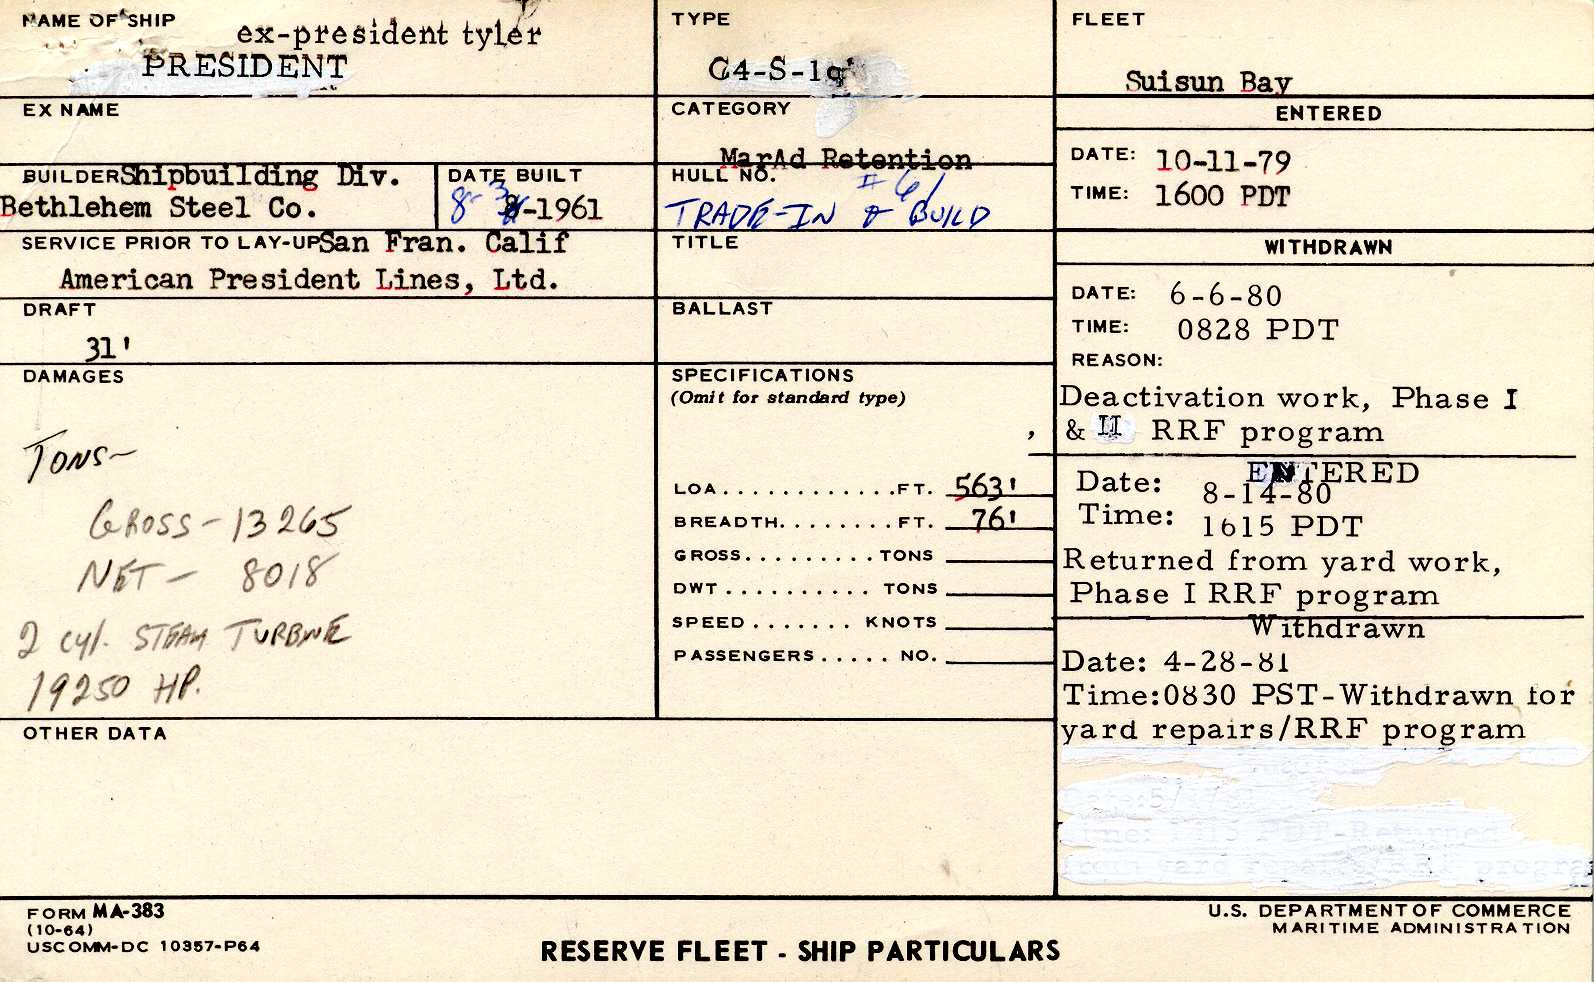 NAME OF SHIP
ex-president tyler
PRESIDENT
EX NAME
BUILDER Shipbuilding Div.
Bethlehem Steel Co.
DATE BUILT
8-1961
SERVICE PRIOR TO LAY-UP San Fran. Calif
American President Lines, Ltd.
DRAFT
31'
DAMAGES
TONS~
GROSS - 13265
NET - 8018
2 cyl. STEAM TURBINE
19250 HP.
OTHER DATA
TYPE
C4-S-1q
CATEGORY
MarAd Retention
HULL NO. # 61
TRADE-IN & BUILD
TITLE
BALLAST
SPECIFICATIONS
(Omit for standard type)
LOA.............FT. 563'
BREADTH........FT. 76'
GROSS.........TONS
DWT.......... TONS
SPEED....... KNOTS
PASSENGERS..... NO.
FLEET
Suisun Bay
ENTERED
DATE: 10-11-79
TIME: 1600 PDT
WITHDRAWN
DATE: 6-6-80
TIME: 0828 PDT
REASON:
Deactivation work, Phase I
, & II RRF program
ENTERED
Date: 8-14-80
Time: 1615 PDT
Returned from yard work,
Phase I RRF program
Withdrawn
Date: 4-28-81
Time:0830 PST-Withdrawn for
yard repairs/RRF program
PDT-Returned
from yard program
FORM MA-383
(10-64)
USCOMM-DC 10357-P64
RESERVE FLEET - SHIP PARTICULARS
U.S. DEPARTMENT OF COMMERCE
MARITIME ADMINISTRATION